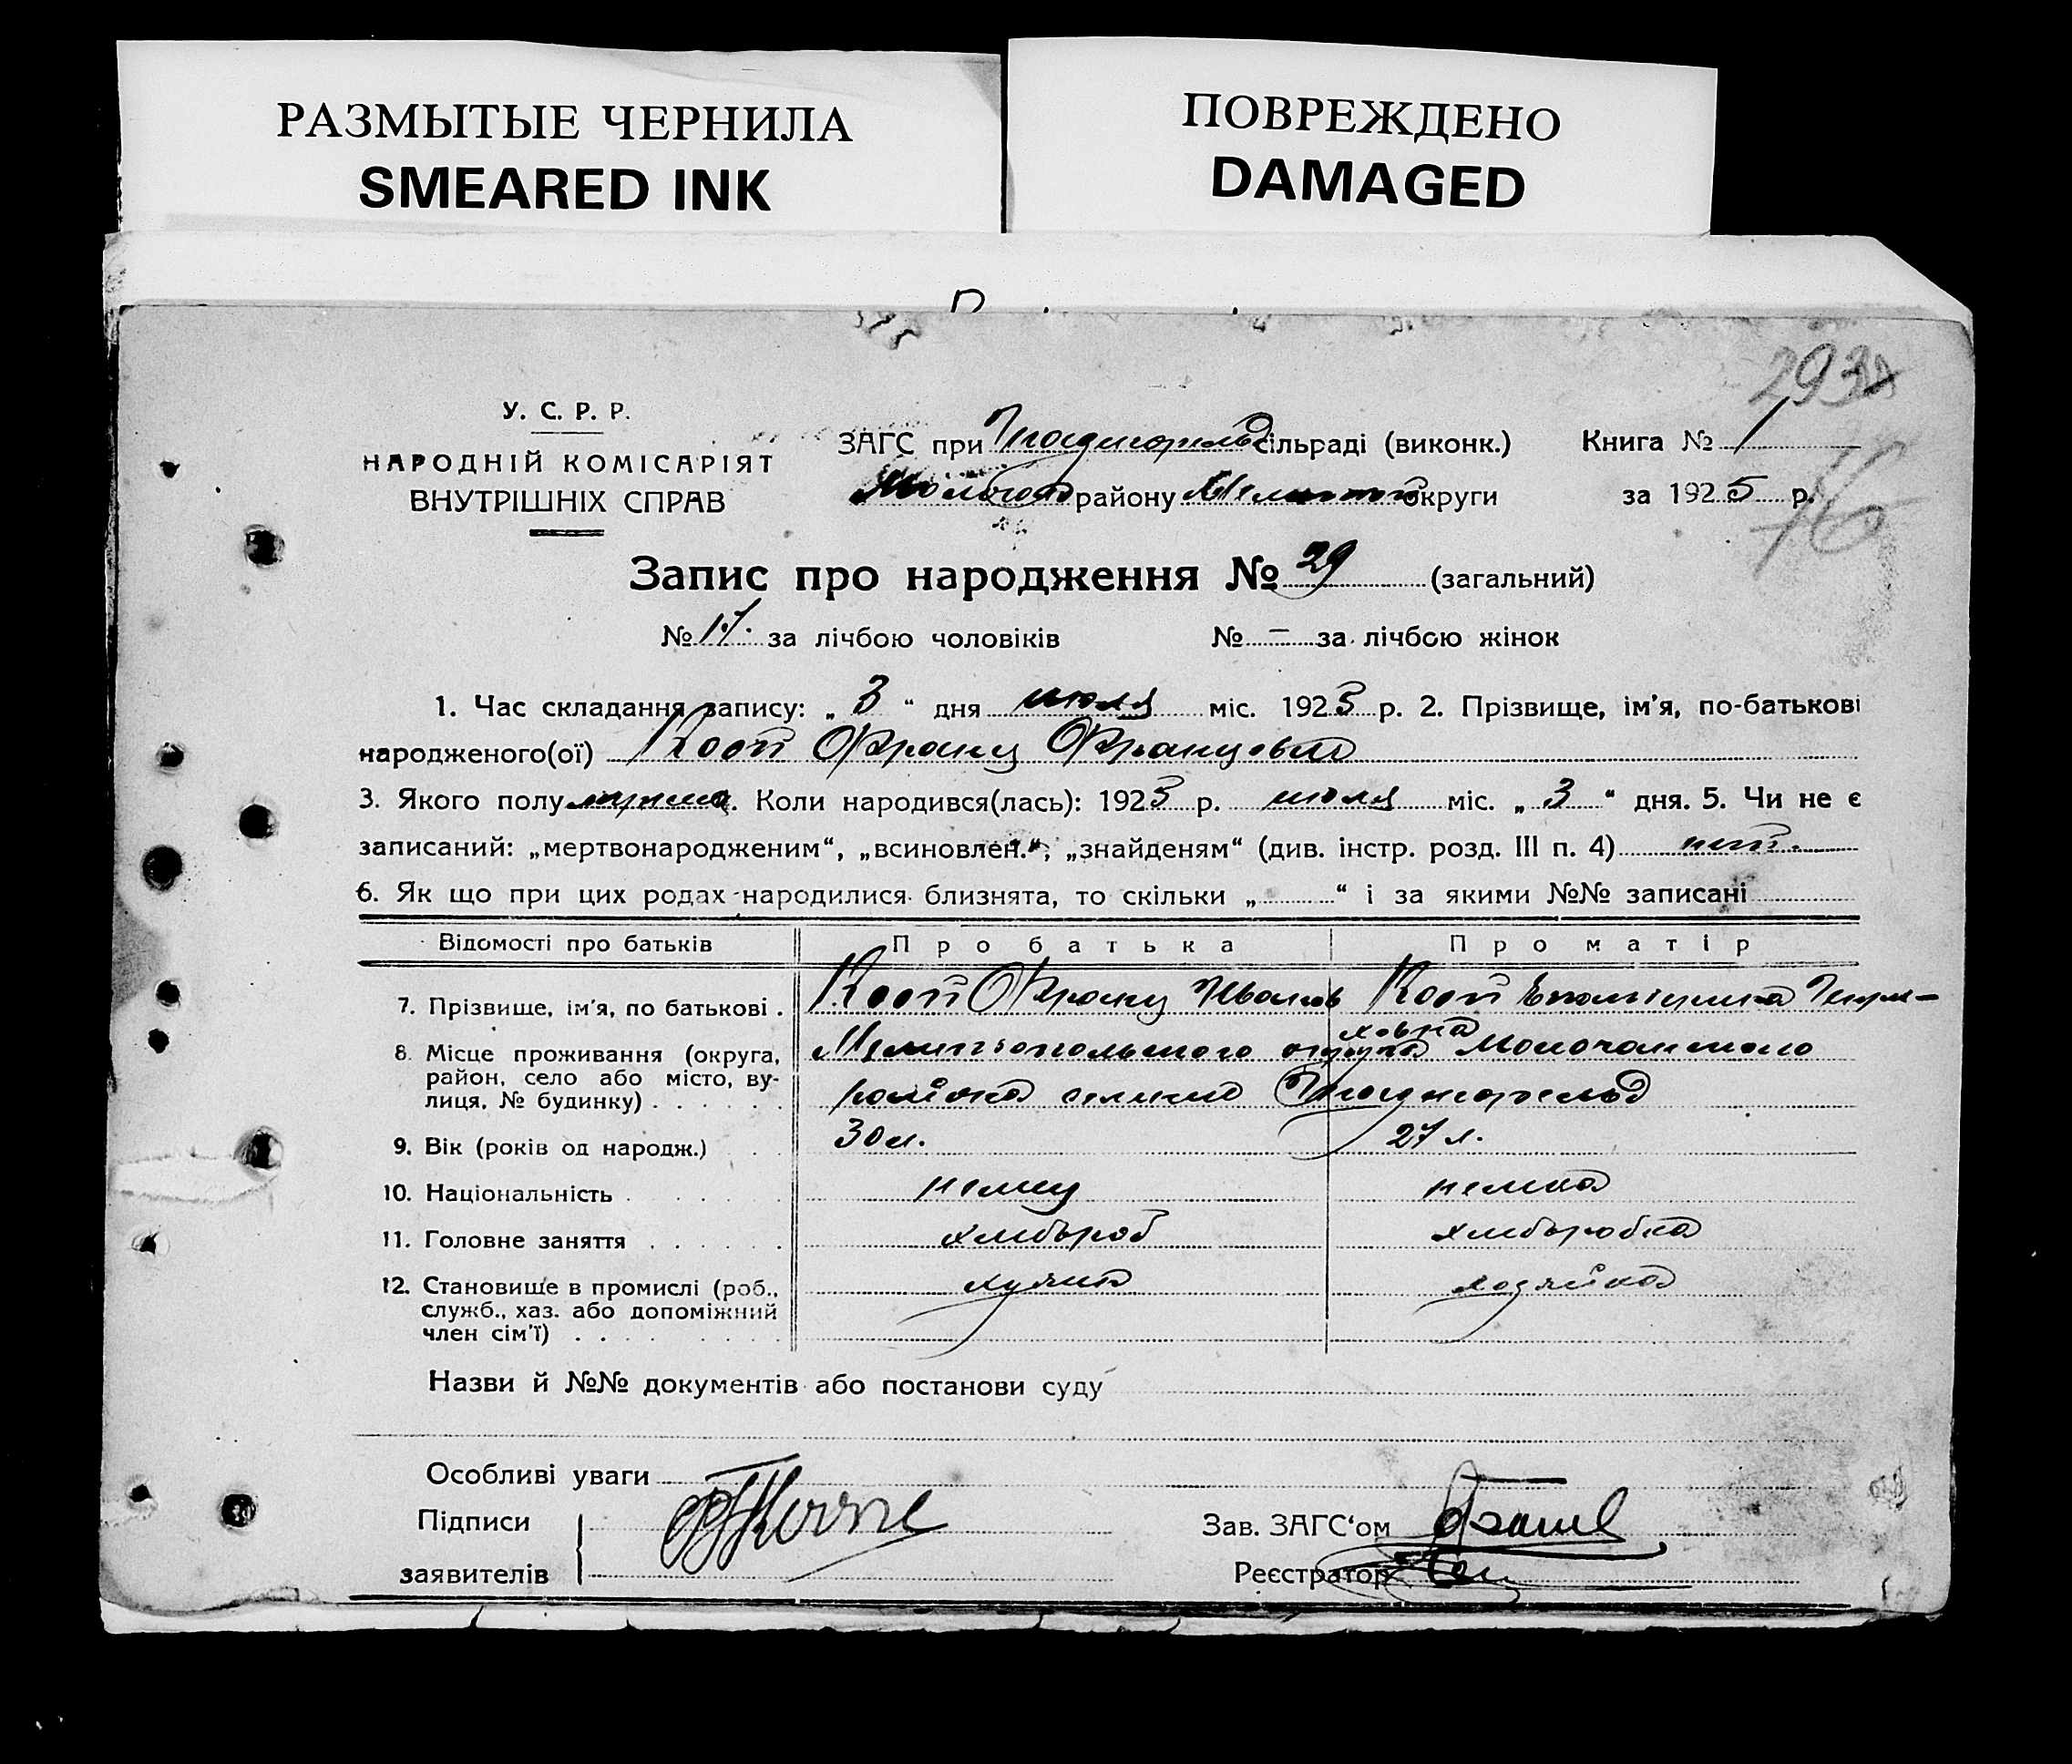 РАЗМЫТЫЕ ЧЕРНИЛА
SMEARED INK
ПОВРЕЖДЕНО
DAMAGED
293
16
У. С. Р. Р.
НАРОДНІЙ КОМІСАРІЯТ
ВНУТРІШНІХ СПРАВ
ЗАГС при сільраді (виконк.) Книга № 1
району округи за 1925 р.
Запис про народження № 29 (загальний)
№ 17. за лічбою чоловіків № – за лічбою жінок
1. Час складання запису: „ 3 “ дня июля міс. 1925 р. 2. Прізвище, ім'я, по-батькові
народженого(ої) Кооп Франц Францович
3. Якого полу мужск. Коли народився(лась): 1925 р. июля міс. „ 3 “ дня. 5. Чи не є
записаний: „мертвонародженим“, „всиновлен.“, „знайденям“ (див. інстр. розд. III п. 4) нет.
6. Як що при цих родах народилися близнята, то скільки „ “ і за якими №№ записані
Відомості про батьків Про батька Про матір
7. Прізвище, ім'я, по батькові . Кооп Франц Иванов Кооп Екатерина
8. Місце проживання (округа,
район, село або місто, ву-
лиця, № будинку) . . . . . .
Мелитопольского округа Молочанского
района селение Гнаденфельд
9. Вік (років од народж.) 30 л. 27 л.
10. Національність немец немка
11. Головне заняття хлибороб хлиборобка
12. Становище в промислі (роб.,
служб., хаз. або допоміжний
член сім'ї) хозяин хозяйка
Назви й №№ документів або постанови суду
Особливі уваги
Підписи
заявителів
Зав. ЗАГС‘ом
Реєстратор